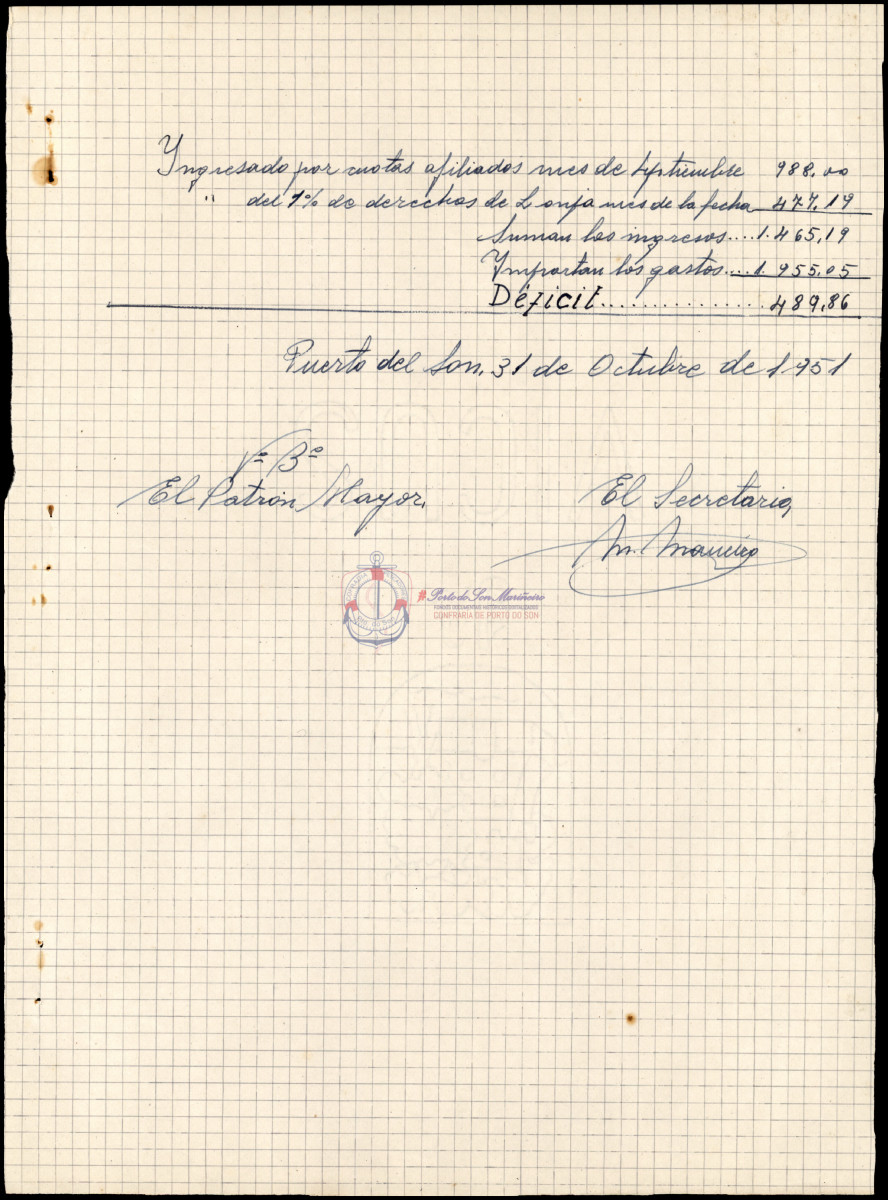 Yngresado por cuotas afiliados mes de Septiembre 988.00
" del 1% de derechos de Lonja mes de la fecha 477,19
Suman los ingresos....1.465,19
Ymportan los gastos....1.955.05
Déficit................489,86
Puerto del Son, 31 de Octubre de 1.951
Vº Bº
El Patrón Mayor,
El Secretario,
M. Maneiro
#Porto do Son Mariñeiro
CONFRARIA DE PORTO DO SON